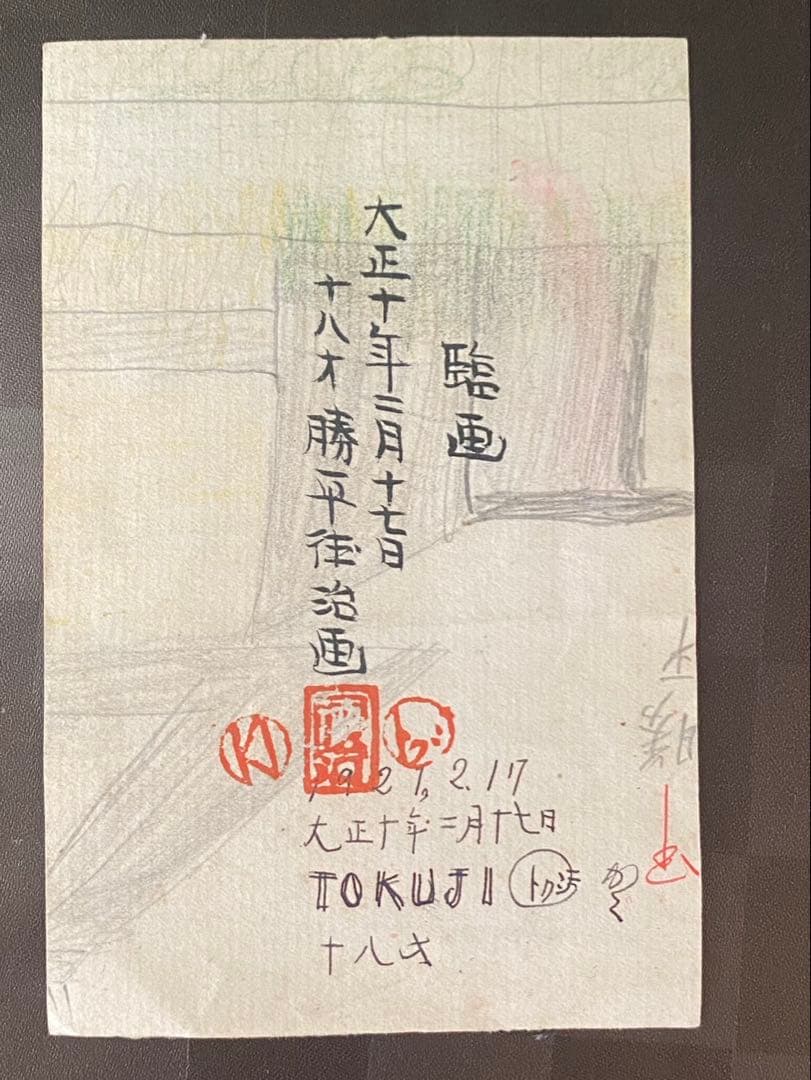 臨画
大正十年二月十七日
十八才 勝平徳治画
徳治
トクジ
1921, 2. 17
大正十年二月十七日
TOKUJI トクジ
十八才
勝平
画
かく